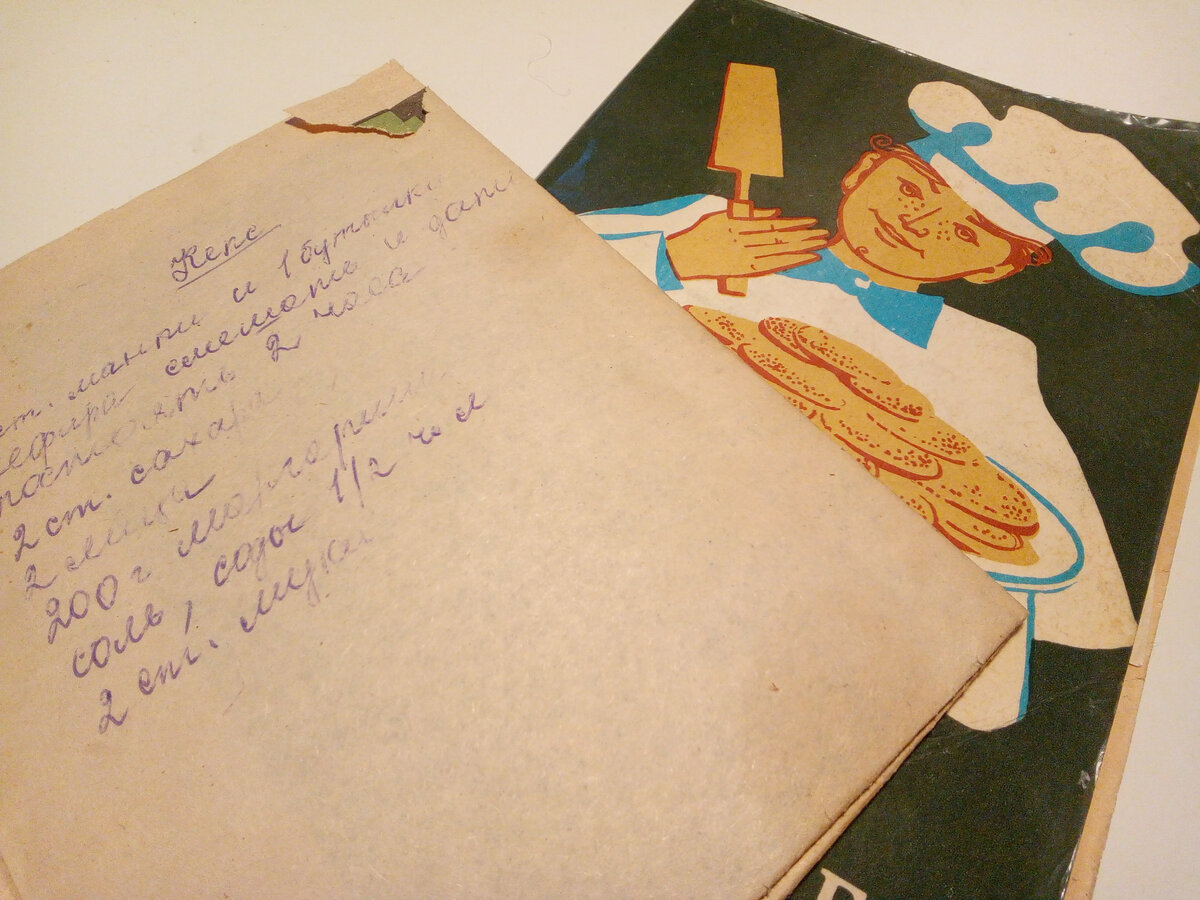 Кекс
ст. манки и 1 бутылка
кефира смешать и дать
настоять 2 часа
2 ст. сахара
2 яйца
200 г маргарина
соль, соды 1/2 ч л
2 ст. муки